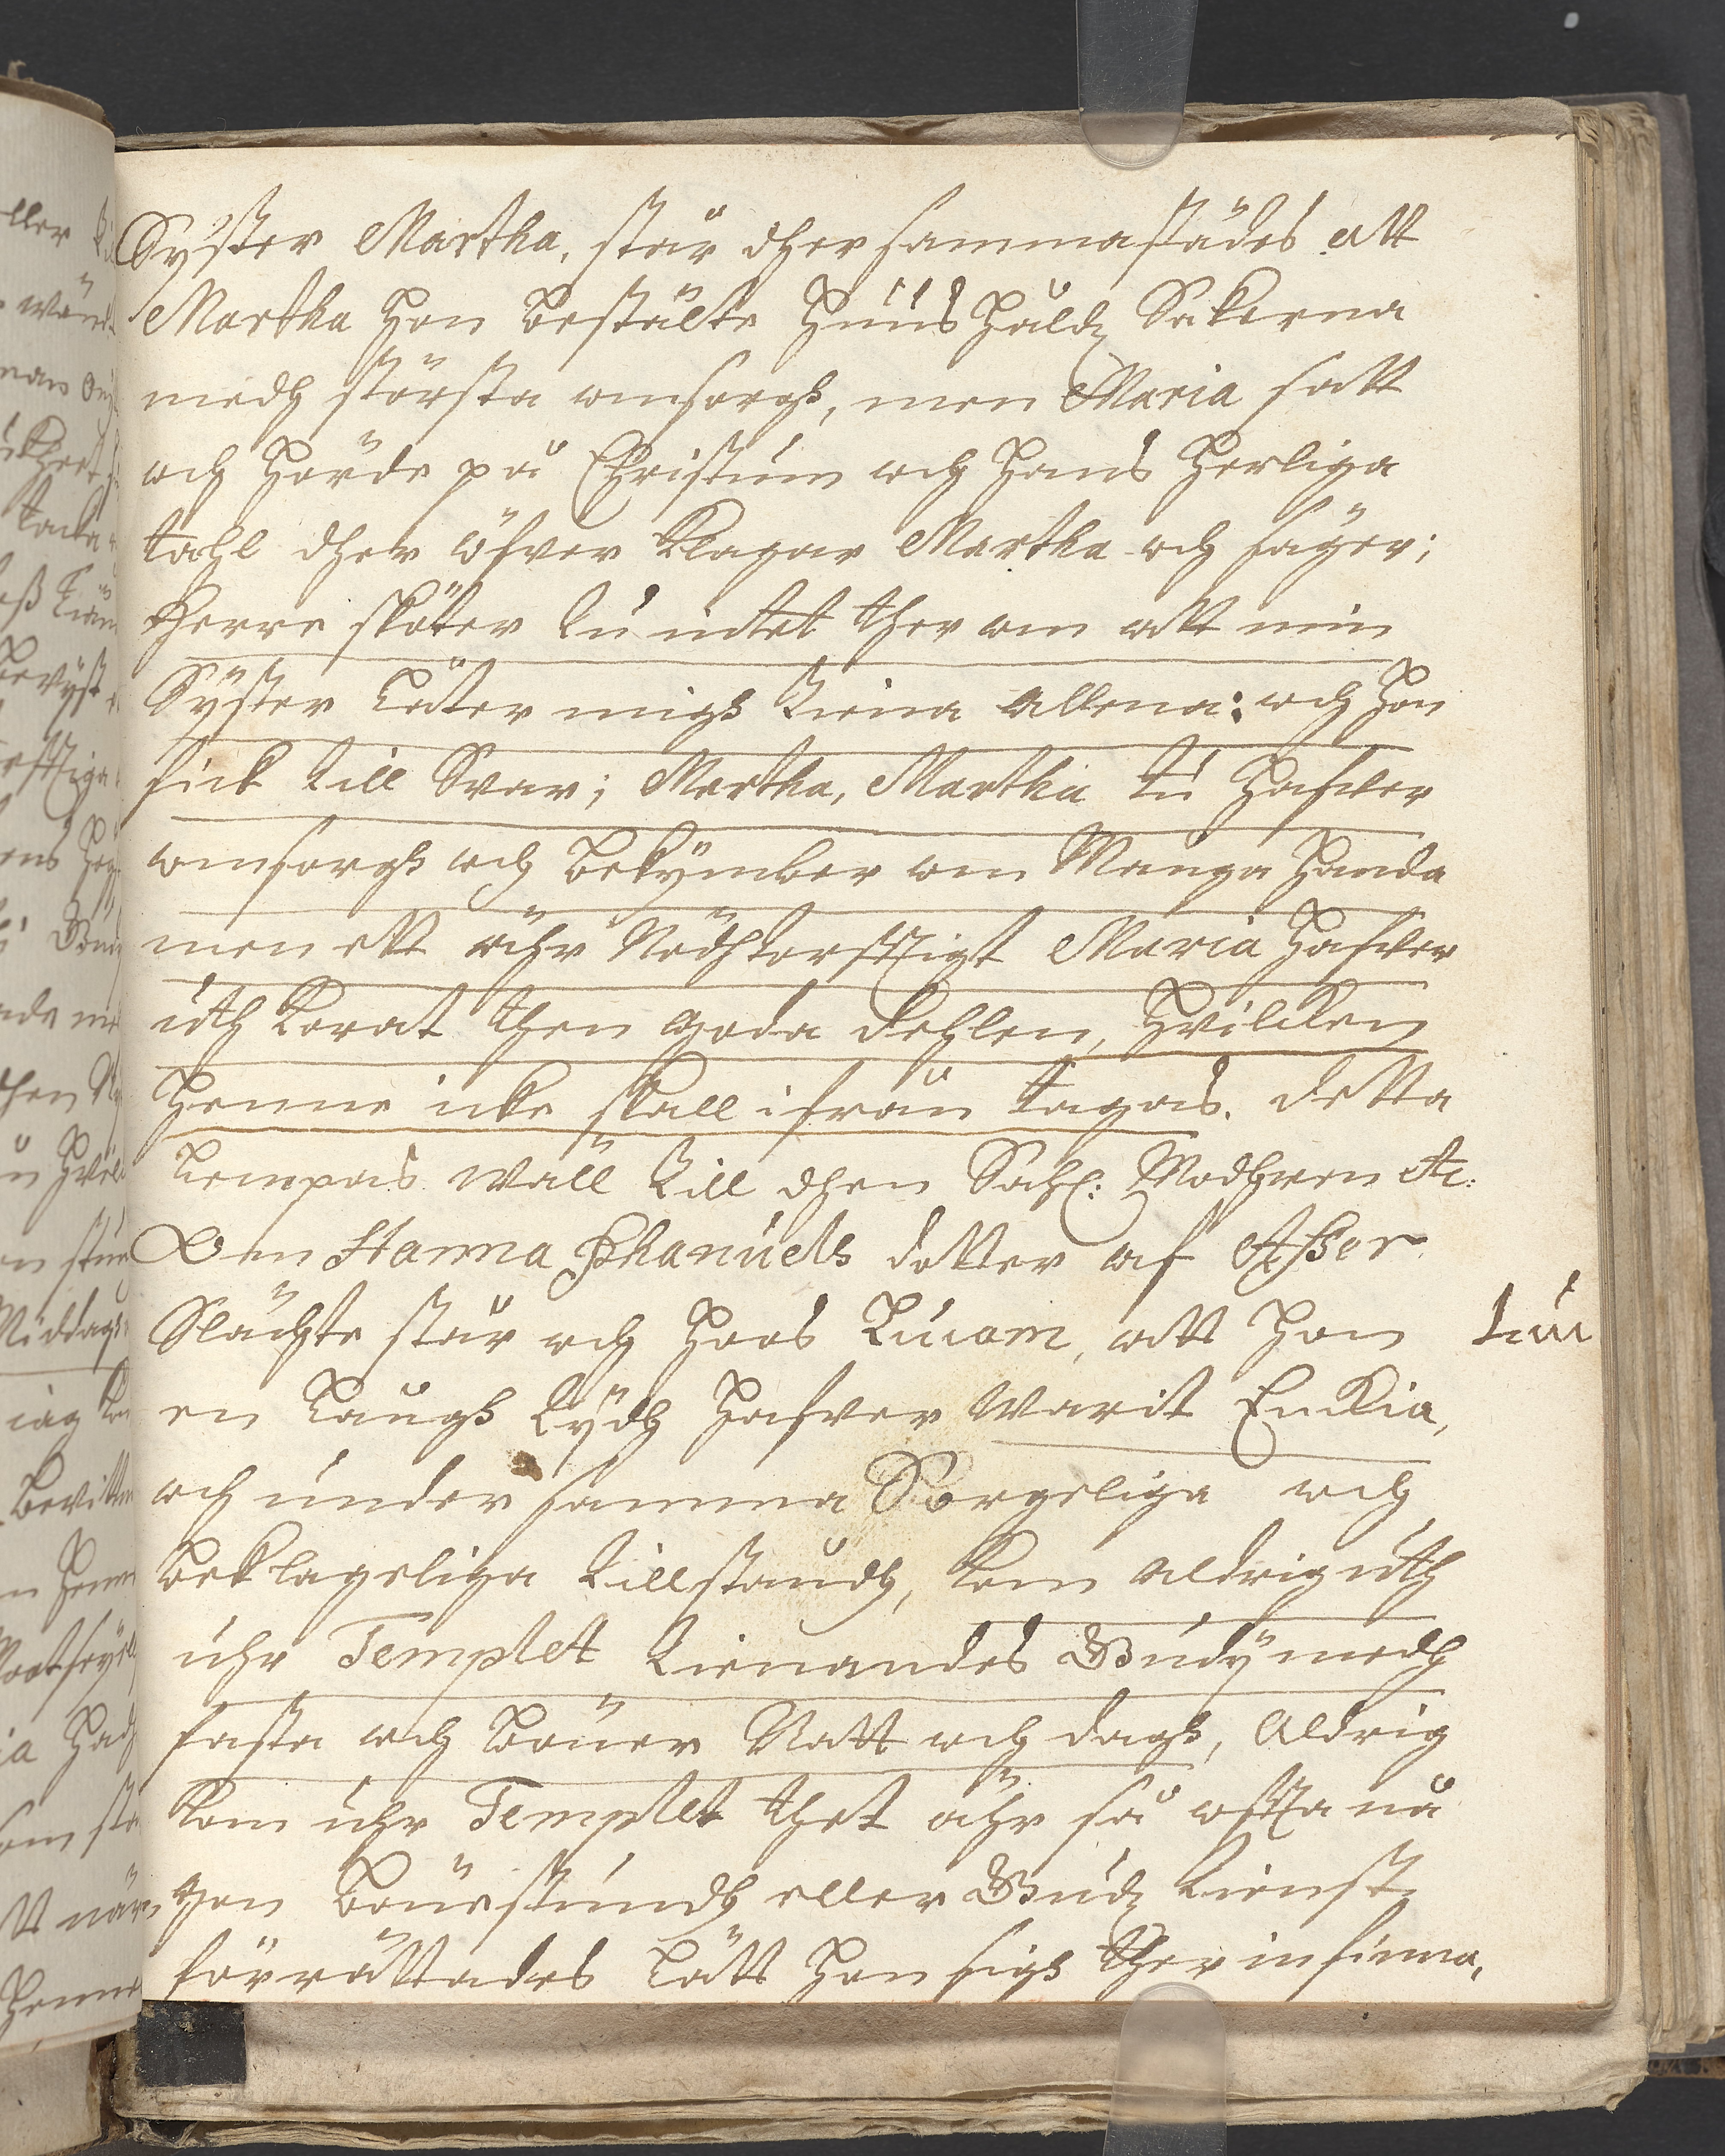 Syster Martha, står dher sammastädes att
Martha hon bestälte Huus Håldz Sakerna
medh största omsorgh, men Maria satt
och hörde på Christum och hans herliga
tahl dher öfver klagar Martha och säger;
Herre sköter tu intet ther om att min
Syster låter migh tiena allena: och hon
fick till Svar; Martha, Martha tu hafver
omsorgh och bekymber om Många handa
men ett ähr Nödhtorfftigt Maria hafver
uth korat then goda dehlen, hvilken
henne icke skall ifrån tagas. detta
lempas wäll till dhen Sahl: Modhren etc:
Om Hanna Phanuels dotter af Asser
Slächte står och hoos Lucam, att hon
Luc
en långh tydh hafver warit Enckia,
och under samma Sorgeliga och
beklageliga tillståndh, kom aldrig uth
uhr Templet tienandes Gudÿ medh
fasta och böner Natt och dagh, Aldrig
kom uhr Templet thet ähr så offta nå
gon bönestundh eller Gudz tienst
förrättades lätt hon sigh ther in finna,